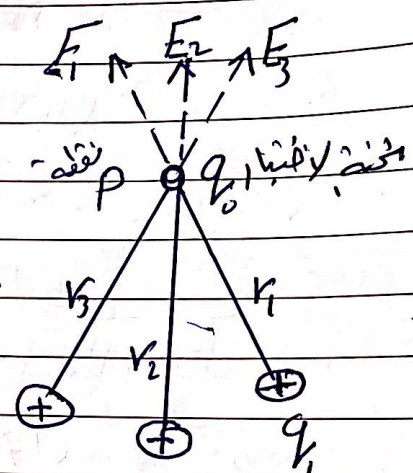 E₁ E₂ E₃
نقطة P q₀ شحنة الاختبار
r₃ r₁
r₂
+ +
+ q₁